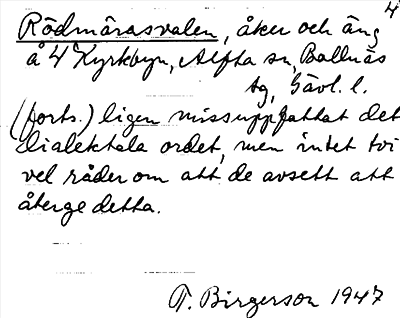 4
Rödmärasvalen, åker och äng
å 4 Kyrkbyn, Alfta sn, Bollnäs
tg, Gävl. l.
(forts.) ligen missuppfattat det
dialektala ordet, men intet tvi
vel råder om att de avsett att
återge detta.
T. Birgerson 1947